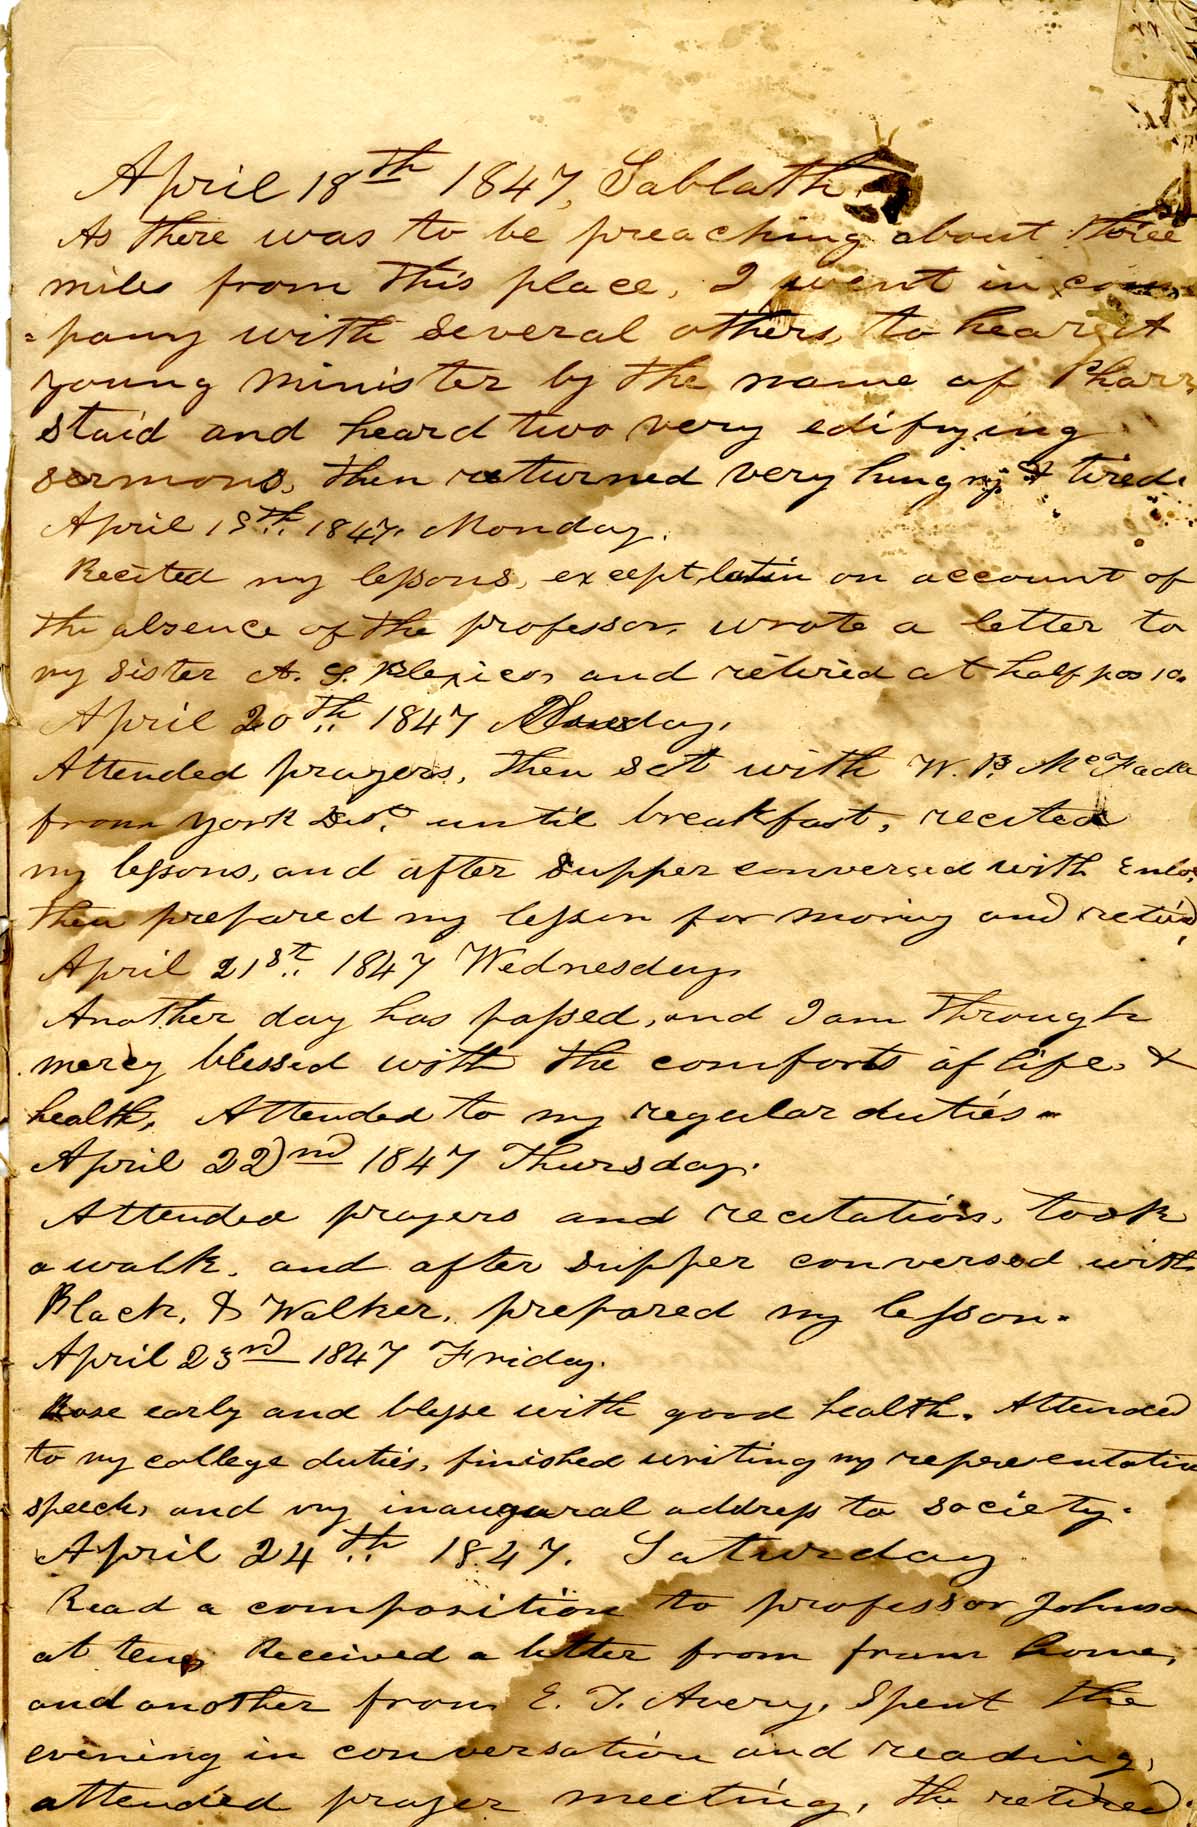 April 18th 1847, Sabbath.
As there was to be preaching about three
miles from this place, I went in com
=pany with several others, to hear a
young minister by the name of Pharr,
staid and heard two very edifying
sermons, then returned very hungry & tired.
April 19th 1847. Monday.
Recited my lessons, except latin on account of
the absence of the professor, wrote a letter to
my sister A. S. and retired at half pas 10.
April 20th 1847 Tuesday.
Attended prayers, then sat with W. B. McFadd
from York Dis. until breakfast, recited
my lessons, and after supper conversed with Enlo
then prepared my lesson for moring and retird
April 21st 1847 Wednesday
Another day has passed, and I am through
mercy blessed with the comforts of life, &
health. Attended to my regular duties.
April 22nd 1847 Thursday.
Attended prayers and recitation, took
a walk, and after supper conversed with
Black, & Walker, prepared my lesson.
April 23rd 1847 Friday.
Rose early and blesse with good health. Attended
to my college duties, finished writing my representative
speech, and my inaugural address to society.
April 24th 1847. Saturday
Read a composition to professor Johnso
at ten, Received a letter from from home,
and another from E. T. Avery, Spent the
evening in conversation and reading,
attended prayer meeting, the retired.